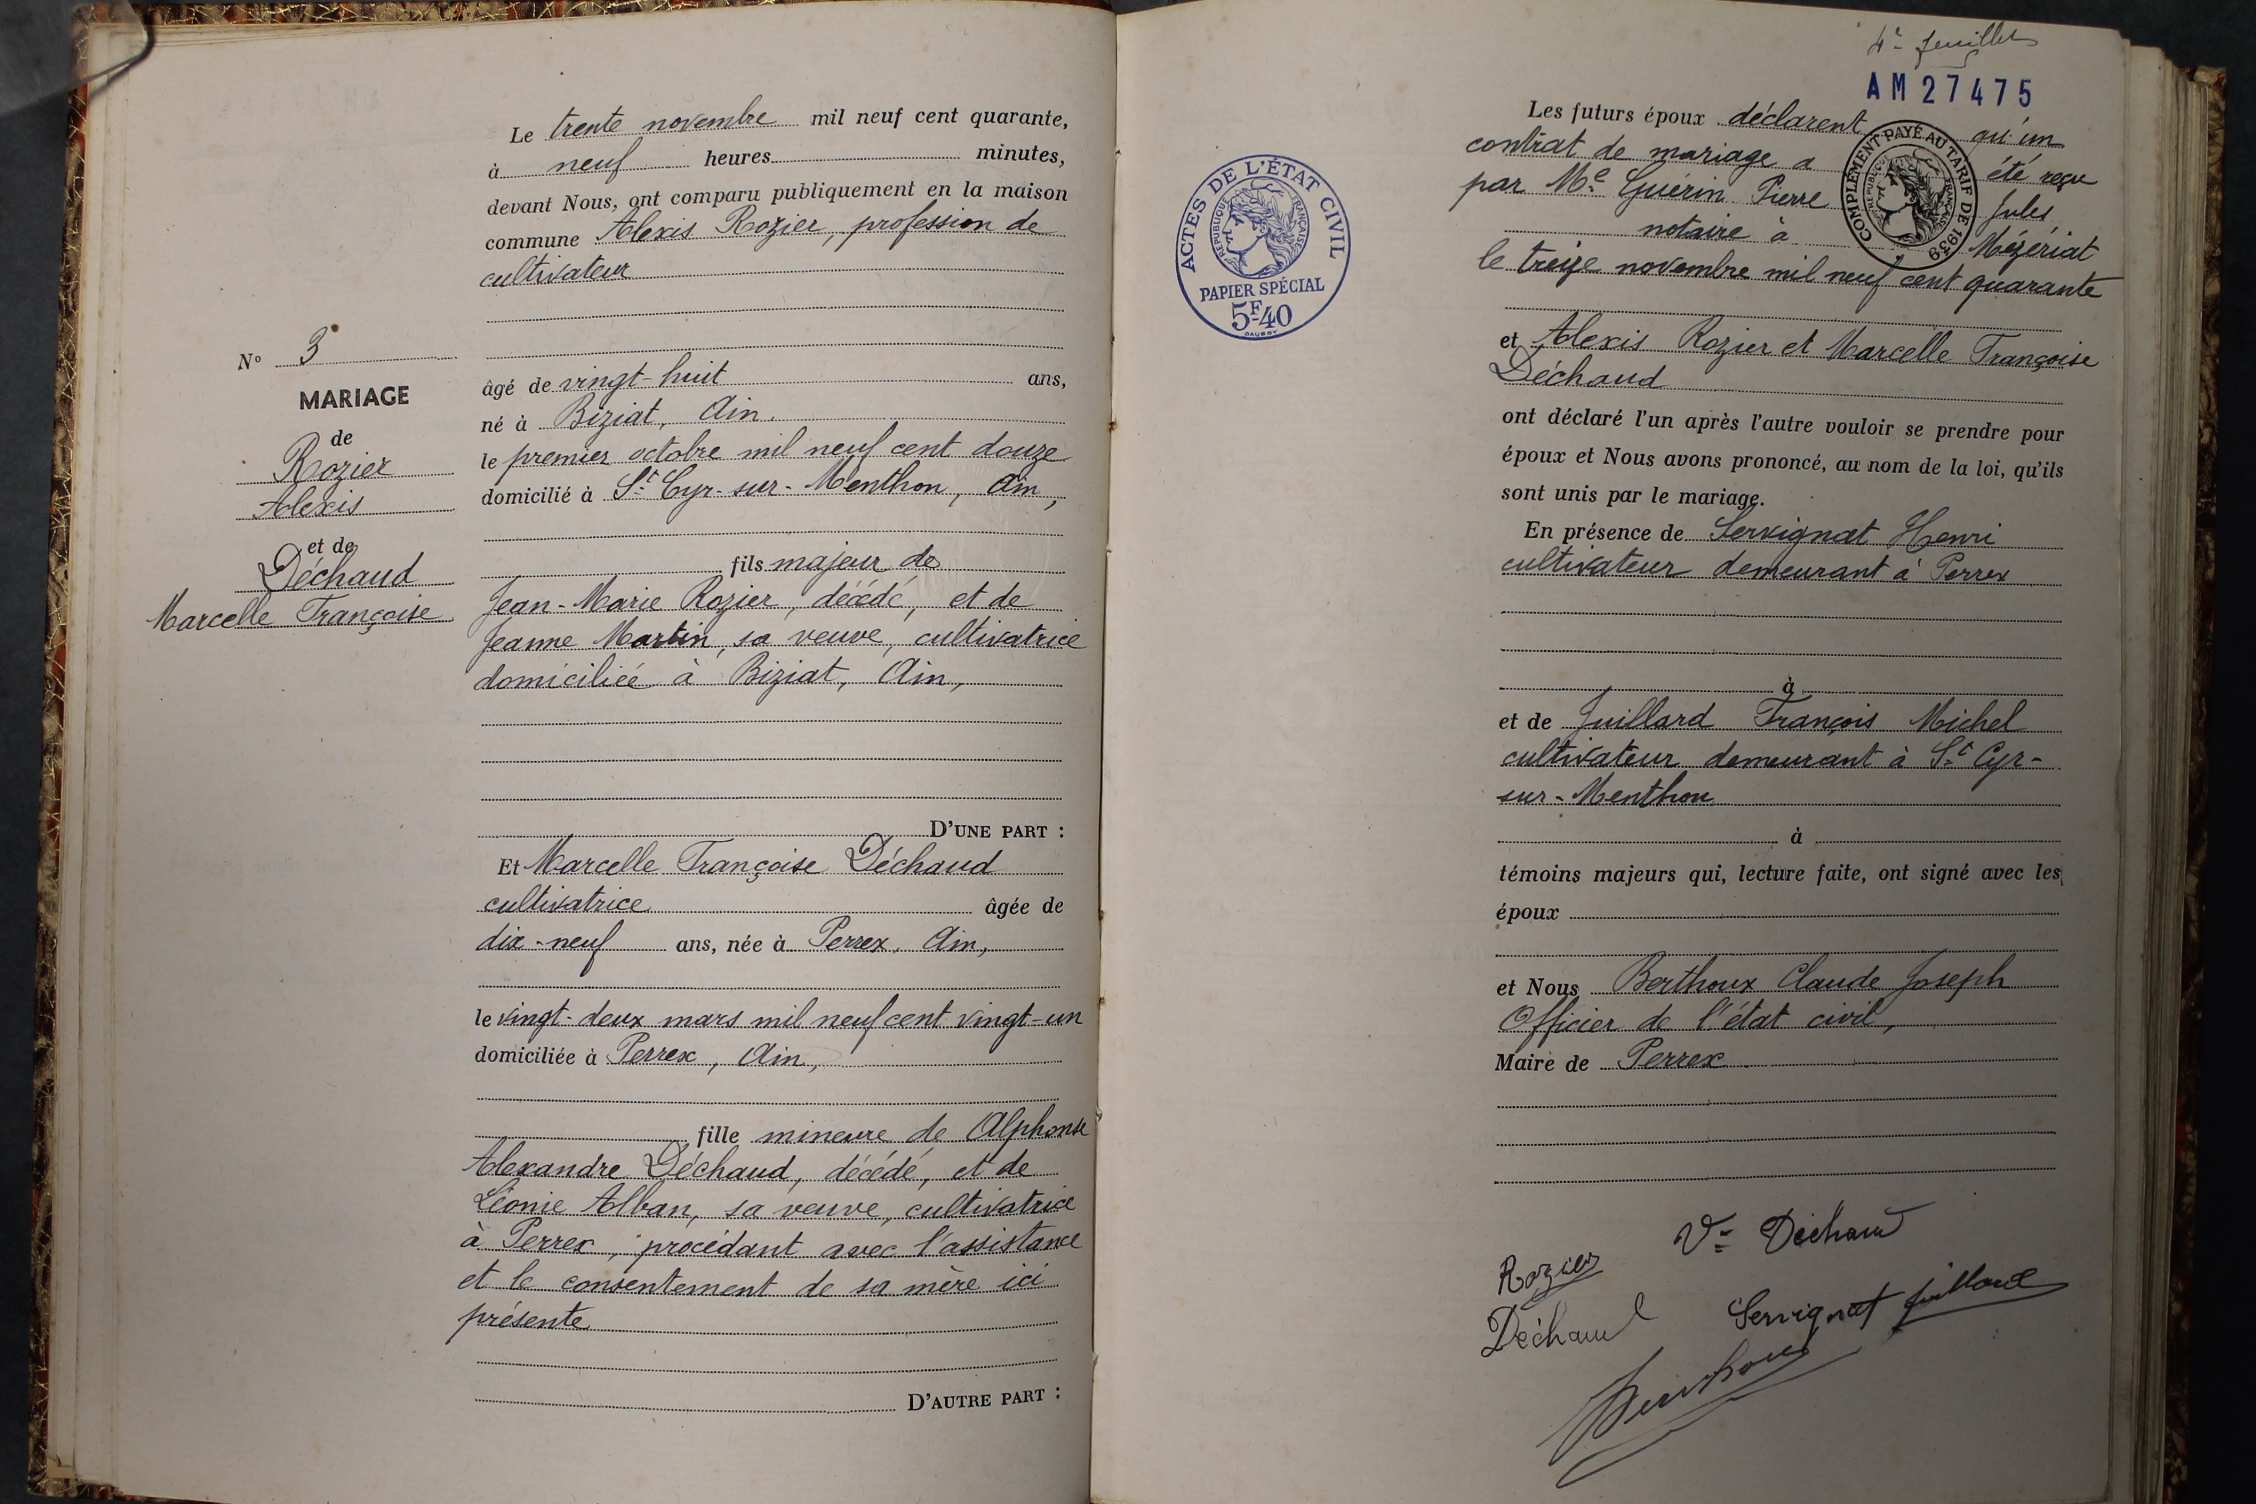 Le trente novembre mil neuf cent quarante,
à neuf heures minutes,
devant Nous, ont comparu publiquement en la maison
commune Alexis Rozier, profession de
cultivateur
N° 3
MARIAGE
de
Rozier
Alexis
et de
Déchaud
Marcelle Françoise
âgé de vingt-huit ans,
né à Biziat, Ain.
le premier octobre mil neuf cent douze
domicilié à St Cyr-sur-Menthon, Ain,
fils majeur de
Jean-Marie Rozier, décédé, et de
Jeanne Martin, sa veuve, cultivatrice
domiciliée à Biziat, Ain,
D'UNE PART :
Et Marcelle Françoise Déchaud
cultivatrice âgée de
dix-neuf ans, née à Perrex, Ain,
le vingt-deux mars mil neuf cent vingt-un
domiciliée à Perrex, Ain,
fille mineure de Alphonse
Alexandre Déchaud, décédé, et de
Léonie Alban, sa veuve, cultivatrice
à Perrex, procédant avec l'assistance
et le consentement de sa mère ici
présente
D'AUTRE PART :
ACTES DE L'ÉTAT CIVIL
RÉPUBLIQUE FRANÇAISE
PAPIER SPÉCIAL
5F-40
DAUSSY
4e feuillet
AM27475
COMPLÉMENT PAYÉ AU TARIF DE 1939
RÉPUBLIQUE FRANÇAISE
Les futurs époux déclarent qu'un
contrat de mariage a été reçu
par Me Guérin Pierre Jules
notaire à Mézériat
le treize novembre mil neuf cent quarante
et Alexis Rozier et Marcelle Françoise
Déchaud
ont déclaré l'un après l'autre vouloir se prendre pour
époux et Nous avons prononcé, au nom de la loi, qu'ils
sont unis par le mariage.
En présence de Servignat Henri
cultivateur demeurant à Perrex
à
et de Juillard François Michel
cultivateur demeurant à St Cyr-
sur-Menthon
à
témoins majeurs qui, lecture faite, ont signé avec les
époux
et Nous Berthoux Claude Joseph
Officier de l'état civil,
Maire de Perrex
Ve Déchaud
Rozier
Déchaud
Servignat Juillard
Berthoux